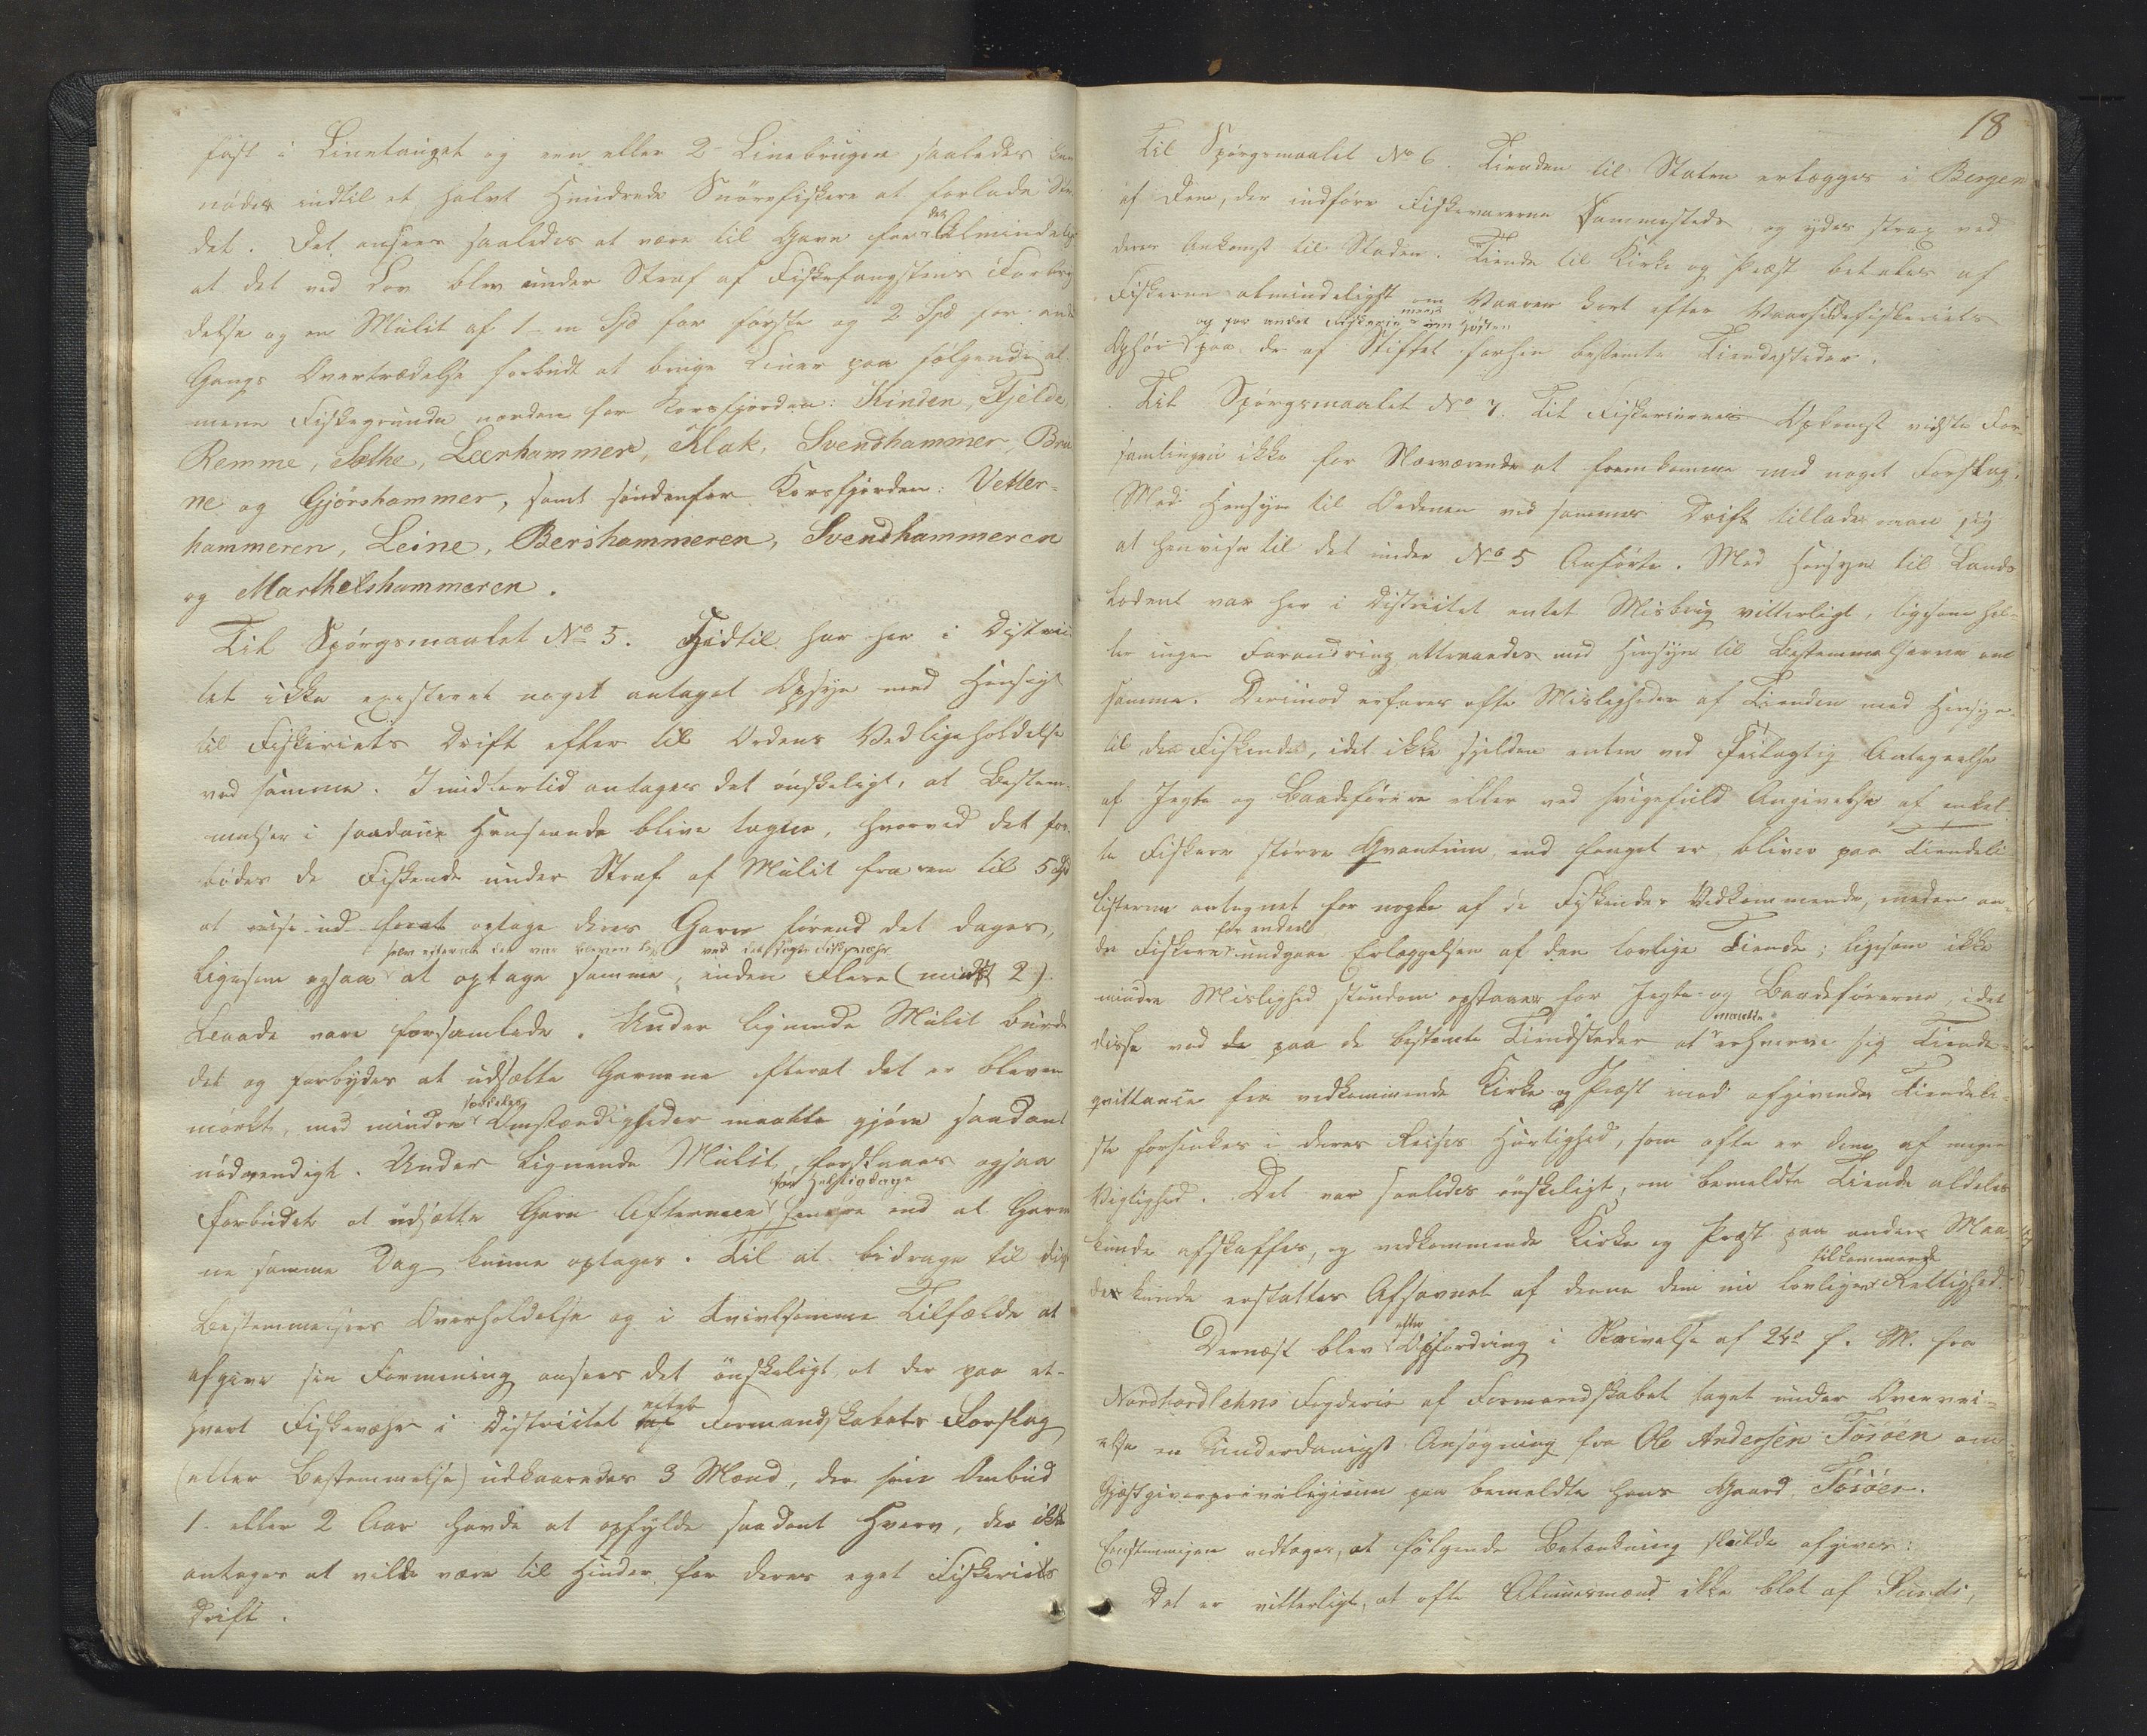 fast i Linetauget og een eller 2 Linebrugere saaledes kan
nødes indtil et halvt Hundrede Snörefiskere at forlade Stæ-
det. Det ansees saaledes at være til Gavn for det Almindelige
at det ved Lov blev under Straf af Fiskefangstens Forbry-
delse og en Mulct af 1 - en Spd for første og 2 Spd for anden
Gangs Overtrædelse forbudt at bruge Liner paa følgende al-
mene Fiskegrunde norden for Korsfjorden: Kinden, Fjelde,
Remme, Sæthe, Leerhammer, Klak, Svendhammer, Bru
ne og Gjörshammer, samt söndenfor Korsfjorden: Vetter-
hammeren, Leine, Bershammeren, Svendhammeren
og Marthelshammeren.
Til Spörgsmaalet No 5. Hidtil har her i Distric-
tet ikke existeret noget antaget Opsyn med Hensigt
til Fiskeriets Drift eller til Ordens Vedligeholdelse
ved samme. Imidlertid antages det ønskeligt, at Bestem-
melser i saadan Henseende blive tagne, hvorved det for-
bödes de Fiskende under Straf af Mulct fra een til 5 Spd
at reise ud forat optage deres Garn førend det dages,
selv efterat det var bleven ved det søgte Fiskevær
ligesom ogsaa at optage samme, inden Flere (mindst 2)
Baade vare forsamlede. Under lignende Mulct burde
det og forbydes at udsætte Garnene efterat det er bleven
særdeles
mørkt, med mindre Omstændigheder maatte gjøre saadant
nødvendigt. Under lignende Mulct, forstaaes ogsaa
for Helligdage
Forbudet at udsætte Garn Aftenen senere end at Garne-
ne samme Dag kunne optages. Til at bidrage til disse
Bestemmelsers Overholdelse og i tvivlsomme Tilfælde at
afgive sin Formening ansees det önskeligt, at der paa et-
hvert Fiskevær i Districtet efter Formandskabets Forslag
(eller Bestemmelse) udkaaredes 3 Mænd, der som Ombud
1 - eller 2 Aar havde at opfylde saadant Hverv, der ikke
antages at ville være til Hinder for deres eget Fiskeries
Drift.
18
Til Spörgsmaalet No 6. Tienden til Staten erlægges i Bergen
af Dem, der indføre Fiskevarerne sammesteds og ydes strax ved
deres Ankomst til Staden. Tiende til Kirke og Præst betales af
Fiskerne almindeligst om Vaaren kort efter Vaarsildefiskeriets
og for andet Fiskerie om Høsten
Ophör paa de af Stiftet forhen bestemte Tiendesteder.
Til Spörgsmaalet No 7. Til Fiskeriernes Opkomst vidste For-
samlingen ikke for Nærværende at fremkomme med noget Forslag.
Med Hensyn til Ordenen ved sammes Drift tillader man sig
at henvise til det under No 5 Anførte. Med Hensyn til Lands
lodend var her i Districtet intet Misbrug vitterligt, ligesom hel-
ler ingen Forandring attraaedes med Hensyn til Bestemmelserne om
samme. Derimod erfares ofte Misligheder af Tienden med Hensyn
til de Fiskende, idet ikke sjelden enten ved feilagtig Antegnelse
af Jægte og Baadeförere eller ved svigefuld Angivelse af enkel-
te Fiskere større Qvantum end fanget er bliver paa Tiendeli
listerne antegnet for nogle af de Fiskendes Vedkommende, medens an-
for endeel
dre Fiskere undgaae Erlæggelsen af den lovlige Tiende; ligesom ikke
mindre Mislighed stundom opstaaer for Jægte og Baadeførerne, idet
maatte
disse ved de paa de bestemte Tiendesteder at erhverve sig Tiende-
qvittance fra vedkommende Kirke og Præst mod afgivende Tiendeli-
ste forsinkes i deres Reises Hurtighed, som ofte er dem af megen
Vigtighed. Det var saaledes önskeligt, om bemeldte Tiende aldeles
kunde afskaffes, og vedkommende Kirke og Præst paa anden Maa-
tilkommende
de kunde erstattes Afsavnet af denne dem nu lovligen Rettighed.
Dernæst blev efter Opfordring i Skrivelse af 24de f. M. fra
Nordhordlehns Fogderie af Formandskabet taget under Overvei-
else en Underdanigst Ansøgning fra Ole Andersen Tösöen om
Gjæstgiverprivilegium paa bemeldte hans Gaard Tösöen.
Eenstemmigen vedtoges, at følgende Betænkning skulde afgives:
Det er vitterligt, at ofte Almuesmænd ikke blot af Sunds,